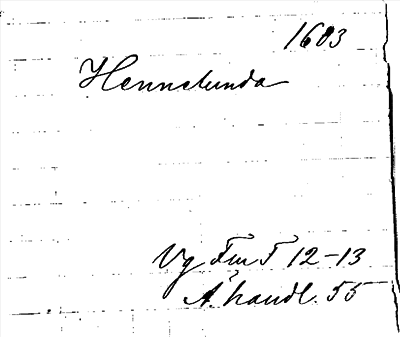 1603
Hennelunda
Vg Fm T 12-13
Ä. handl. 55